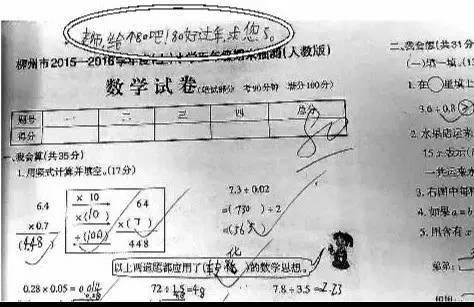 老师,给个80吧!80好过年,求您了。
柳州市2015—2016学年度 (人教版)
数学试卷(笔试部分 考90分钟 满分100分)
题号 一 二 三 四 总分
得分
80
一、我会算(共35分)
1. 用竖式计算并填空。(17分)
6.4 × 10 64 7.3 ÷ 0.02
×0.7 ×(10) ×(7) =(730)÷2
4.48 ÷(100) 448 =(365)
以上两道题都应用了(转化)的数学思想。
0.28 × 0.05 = 72 ÷ 1.5 = 48 7.8 ÷ 3.5 ≈ 2.23
二、我会想(共31分
(一)填一填。(1
1. 在○里填上
3.6 ÷ 0.8
2. 水果店运来
15x表示(
一共运来水
3. 右图中每样
4. 如果a=b
5. 用含有x
第